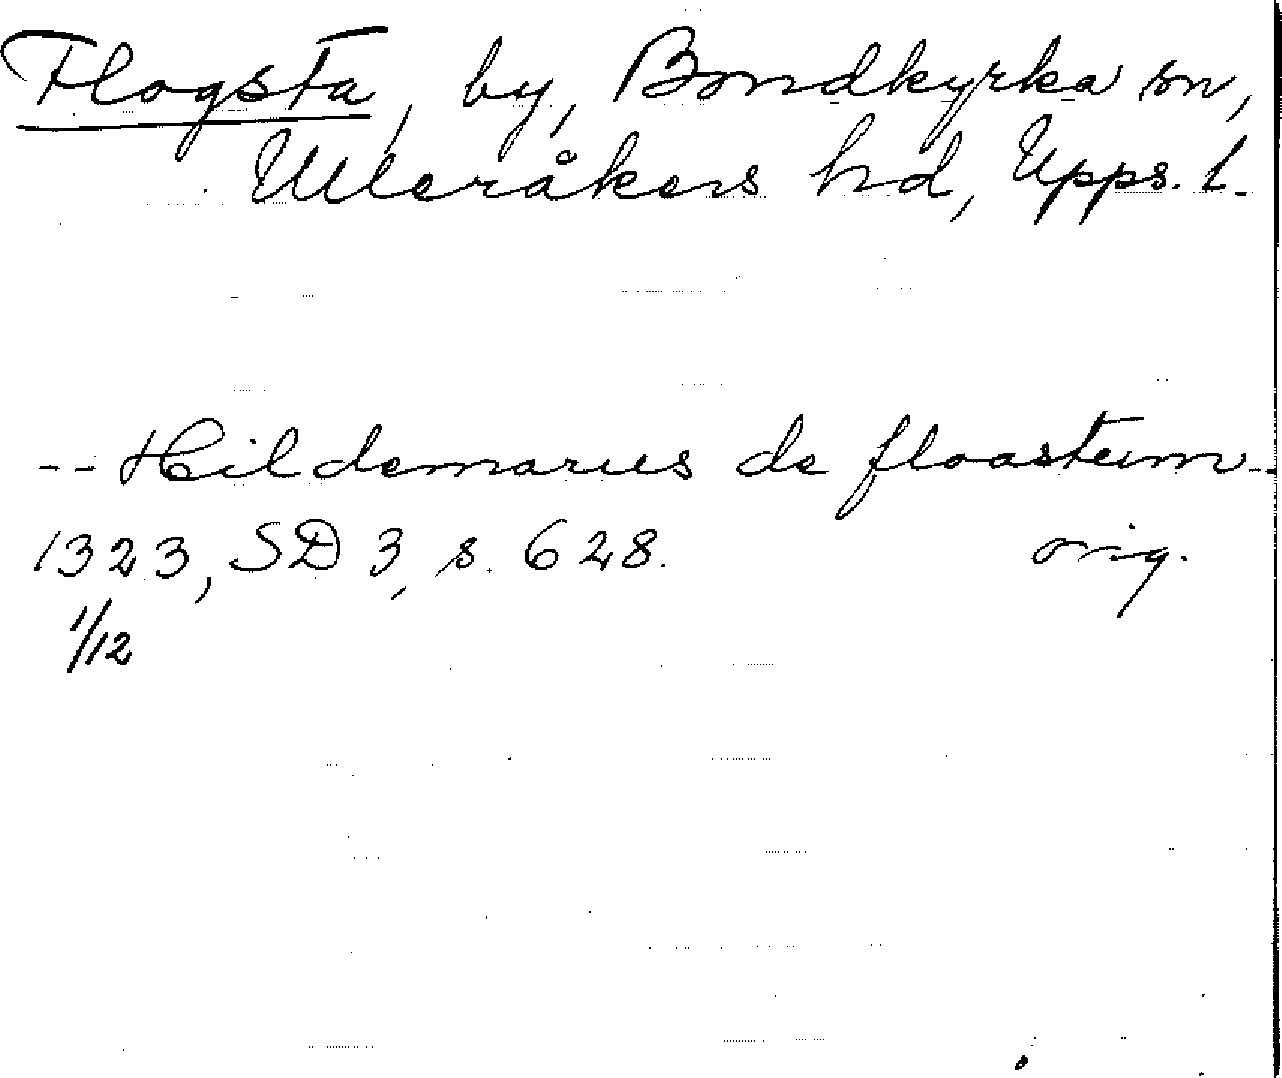 Flogsta, by, Bondkyrka sn,
Ulleråkers hd, Upps. l.
-- Hildemarus de floasteim --
1323, SD 3, s. 628. orig.
1/12